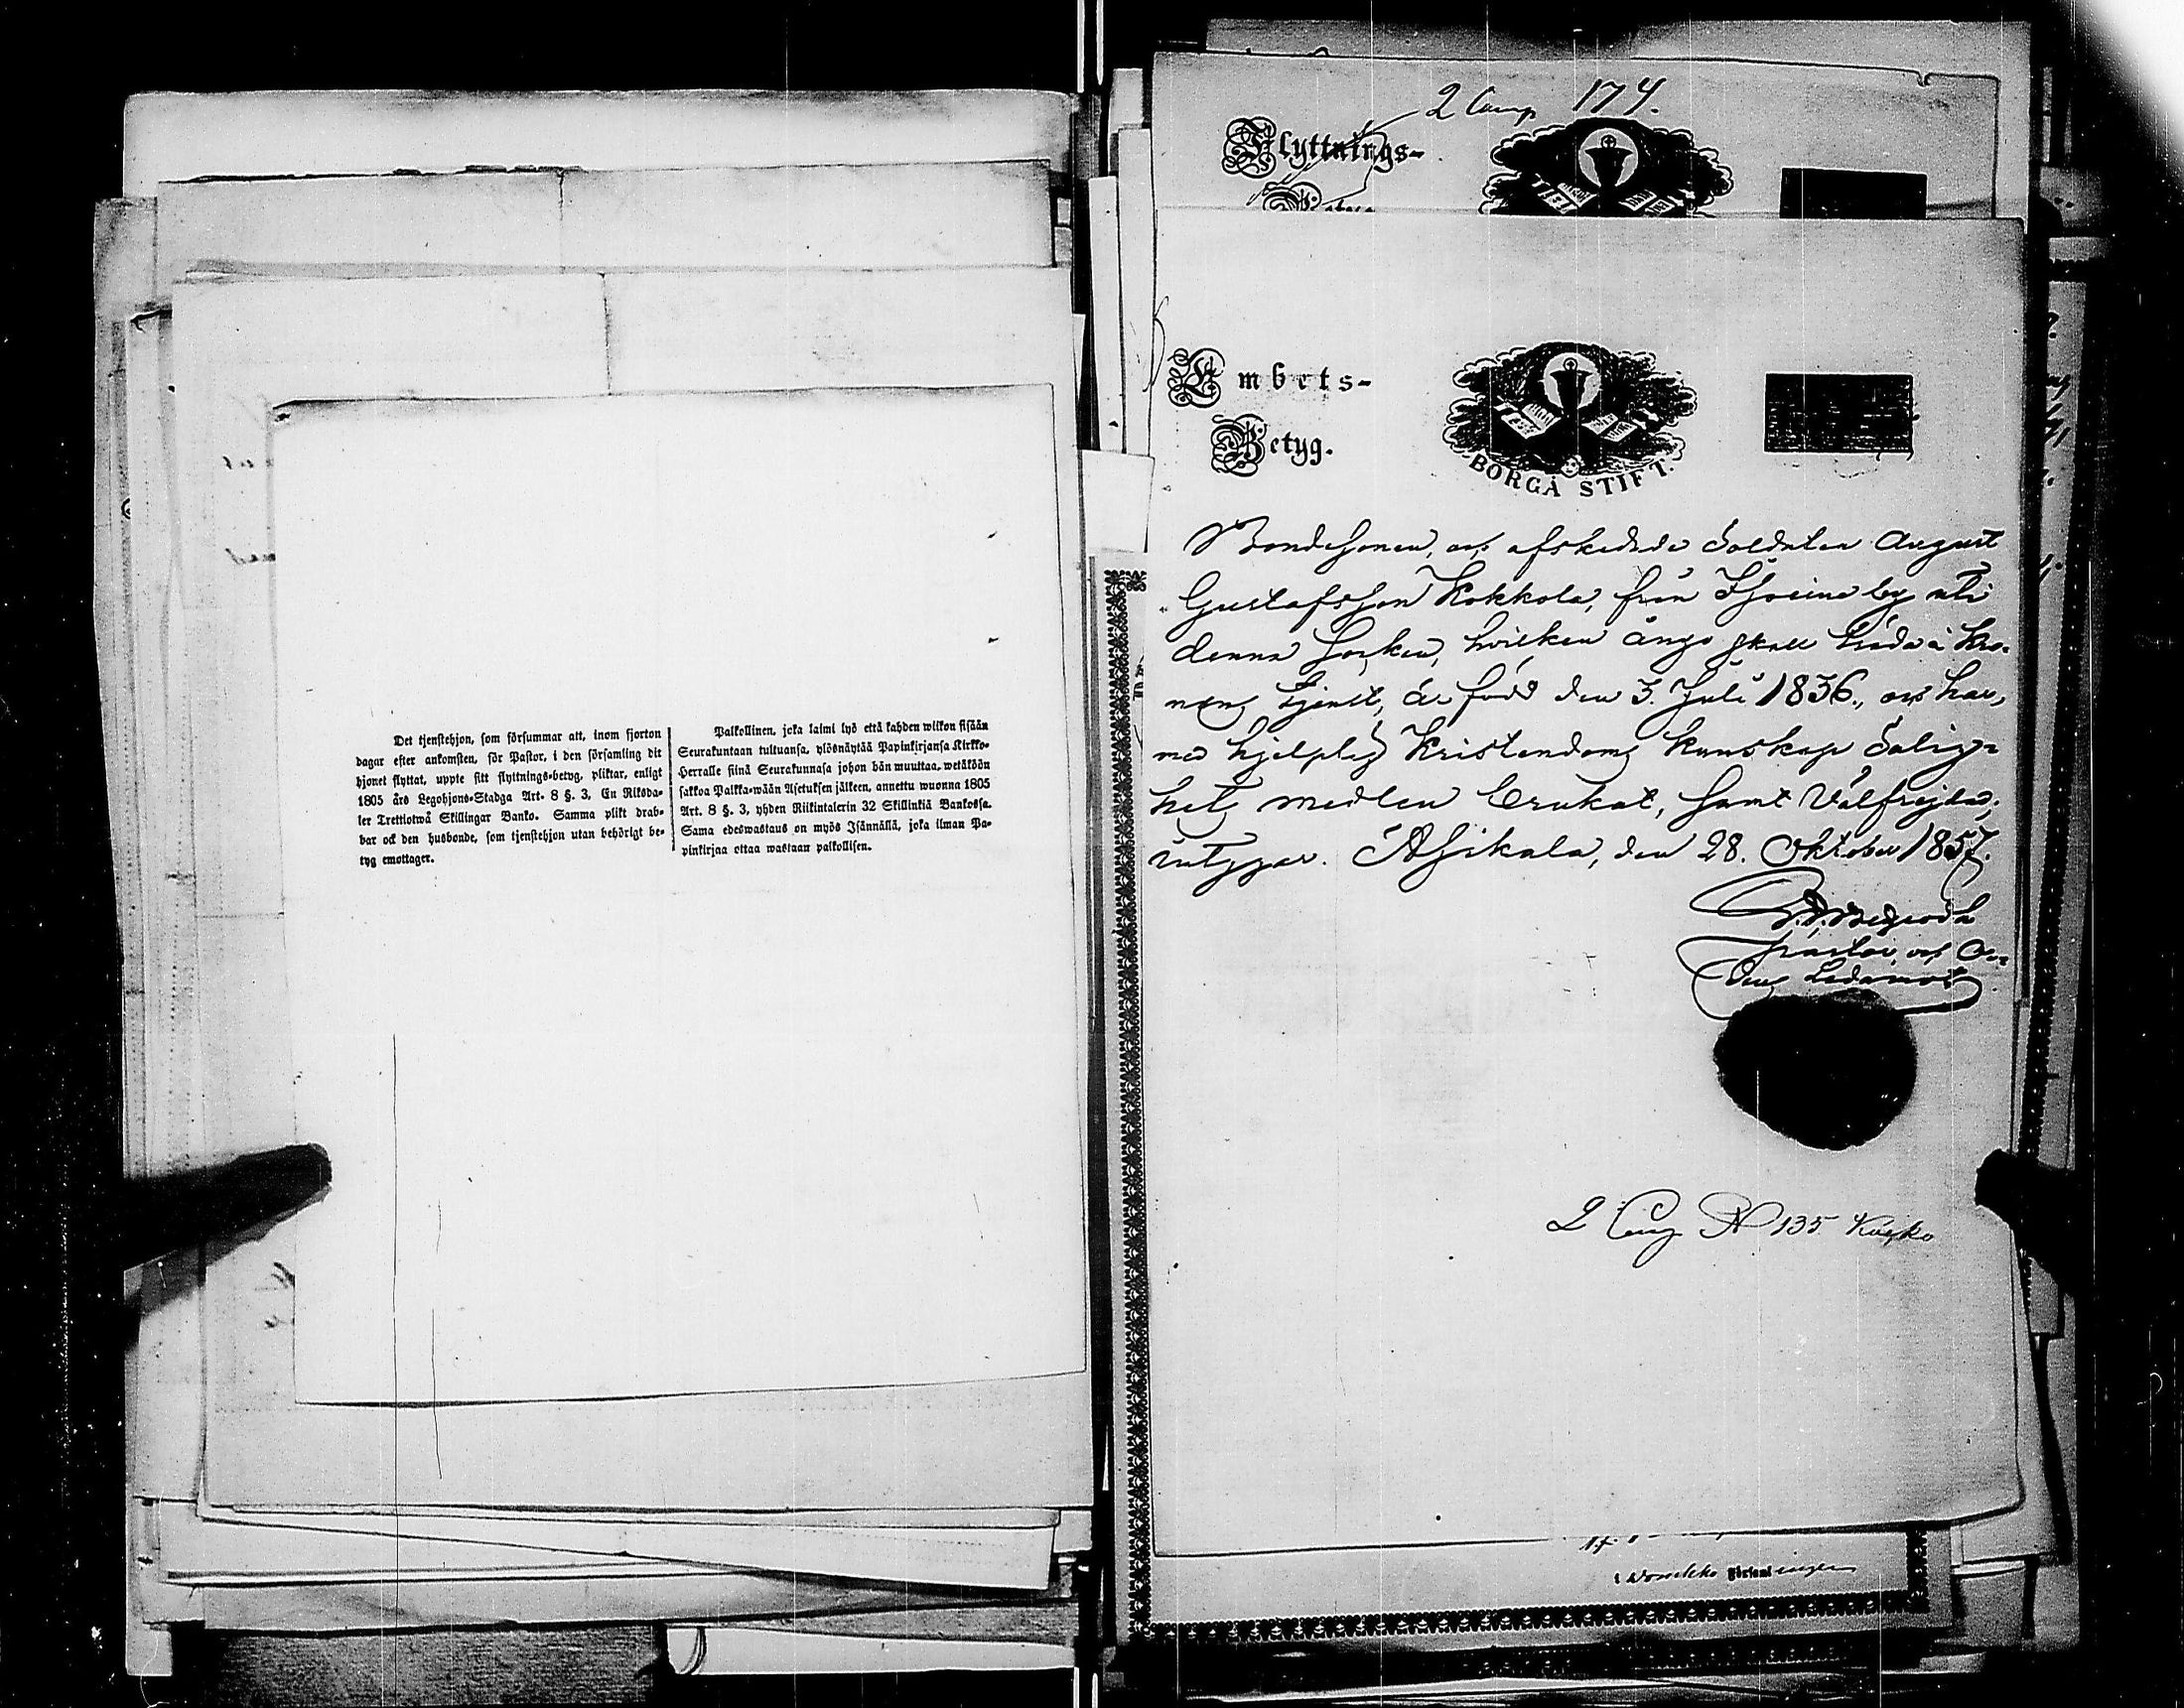 Det tjenstehjon, som försummar att, inom fjorton
dagar efter ankomsten, för Pastor, i den församling dit
hjonet flyttat, uppte sitt flyttnings-betyg, pliktar, enligt
1805 års Legohjons-Stadga Art. 8 §. 3, En Riksda-
ler Trettiotwå Skillingar Banko. Samma plikt drab-
bar ock den husbonde, som tjenstehjon utan behörigt be-
tyg emottager.
Palkollinen, joka laimi lyö että kahden wiikon sisään
Seurakuntaan tultuansa, ylösnäytää Papinkirjansa Kirkko-
Herralle siinä Seurakunnasa johon hän muuttaa, wetäköön
sakkoa Palkka-wään Asetuksen jälkeen, annettu wuonna 1805
Art. 8 §. 3, yhden Riikintalerin 32 Skillinkiä Bankossa.
Sama edeswastaus on myös Isännällä, joka ilman Pa-
pinkirjaa ottaa wastaan palkollisen.
2 Comp 174.
Flyttnings-
Embets-
Betyg.
BORGÅ STIFT.
Bondesonen, och afskedade Soldaten August
Gustafsson Kokkola, från by uti
denna Socken, hvilken ånyo skall träda i Kro-
nans tjenst, är född den 3. Juli 1836., och har,
med hjelplig Kristendoms kunskap Salig-
hets medlen brukat, samt Välfrejdad;
intygar. Asikala, den 28. Oktober 1857.
Pastor och Or-
dens Ledamot
2 Comp N 135 Koskο
Församlingen